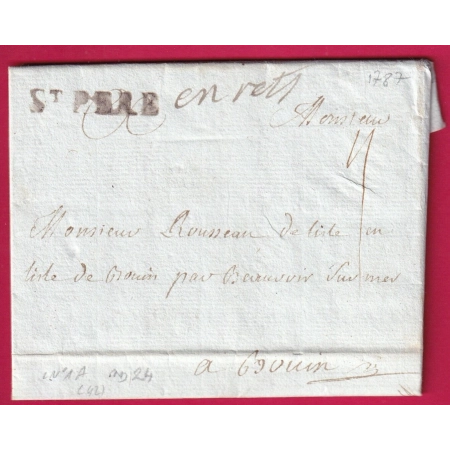 1787
ST PERE en rets
Monsieur
Monsieur Rousseau de lisle en
lisle de Bouin par Beauvoir Sur mer
a Bouin
24